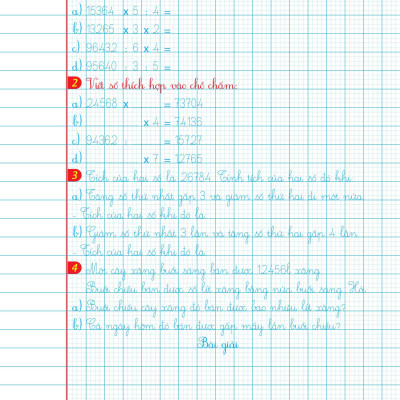 a) 15364 x 5 : 4 =
b) 13265 x 3 x 2 =
c) 96432 : 6 x 4 =
d) 95640 : 3 : 5 =
2 Viết số thích hợp vào chỗ chấm:
a) 24568 x = 73704
b) x 4 = 74136
c) 94362 : = 15727
d) x 7 = 12765
3 Tích của hai số là 26784. Tính tích của hai số đó khi
a) Tăng số thứ nhất gấp 3 và giảm số thứ hai đi một nửa.
- Tích của hai số khi đó là
b) Giảm số thứ nhất 3 lần và tăng số thứ hai gấp 4 lần.
- Tích của hai số khi đó là
4 Một cây xăng buổi sáng bán được 12456l xăng.
Buổi chiều bán được số lít xăng bằng nửa buổi sáng. Hỏi
a) Buổi chiều cây xăng đó bán được bao nhiêu lít xăng?
b) Cả ngày hôm đó bán được gấp mấy lần buổi chiều?
Bài giải